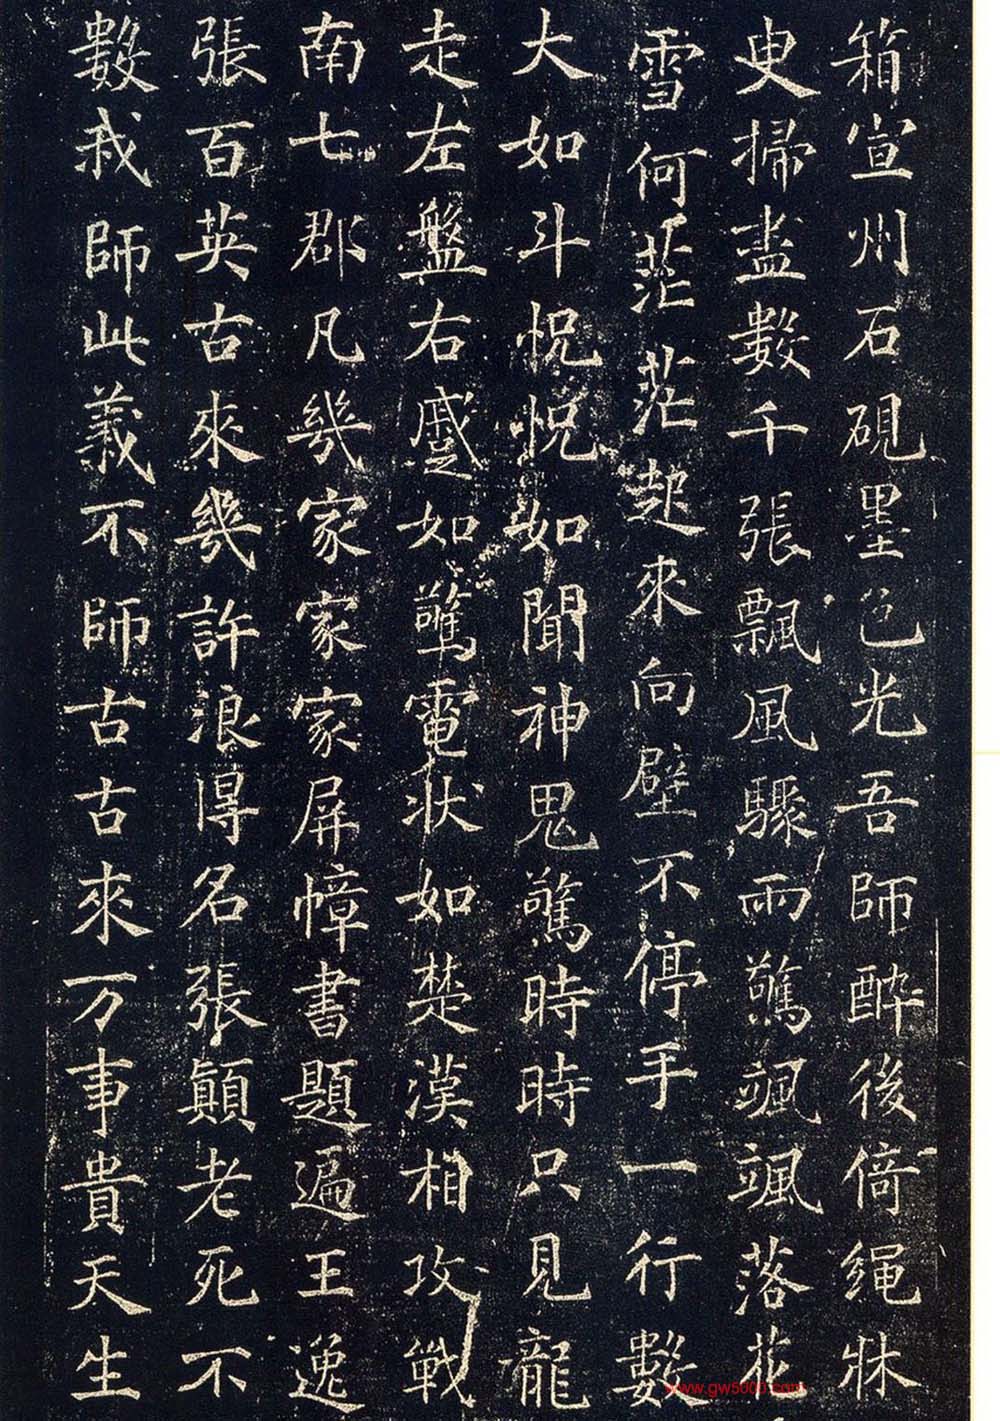 箱宣州石硯墨色光吾師醉後倚繩牀
臾掃盡數千張飄風驟雨驚颯颯落花
雪何茫茫起來向壁不停手一行數
大如斗怳怳如聞神鬼驚時時只見龍
走左盤右蹙如驚電狀如楚漢相攻戰
南七郡凡幾家家家屏幛書題遍王逸
張百英古來幾許浪得名張顛老死不
數我師此義不師古古來万事貴天生
www.gw5000.com